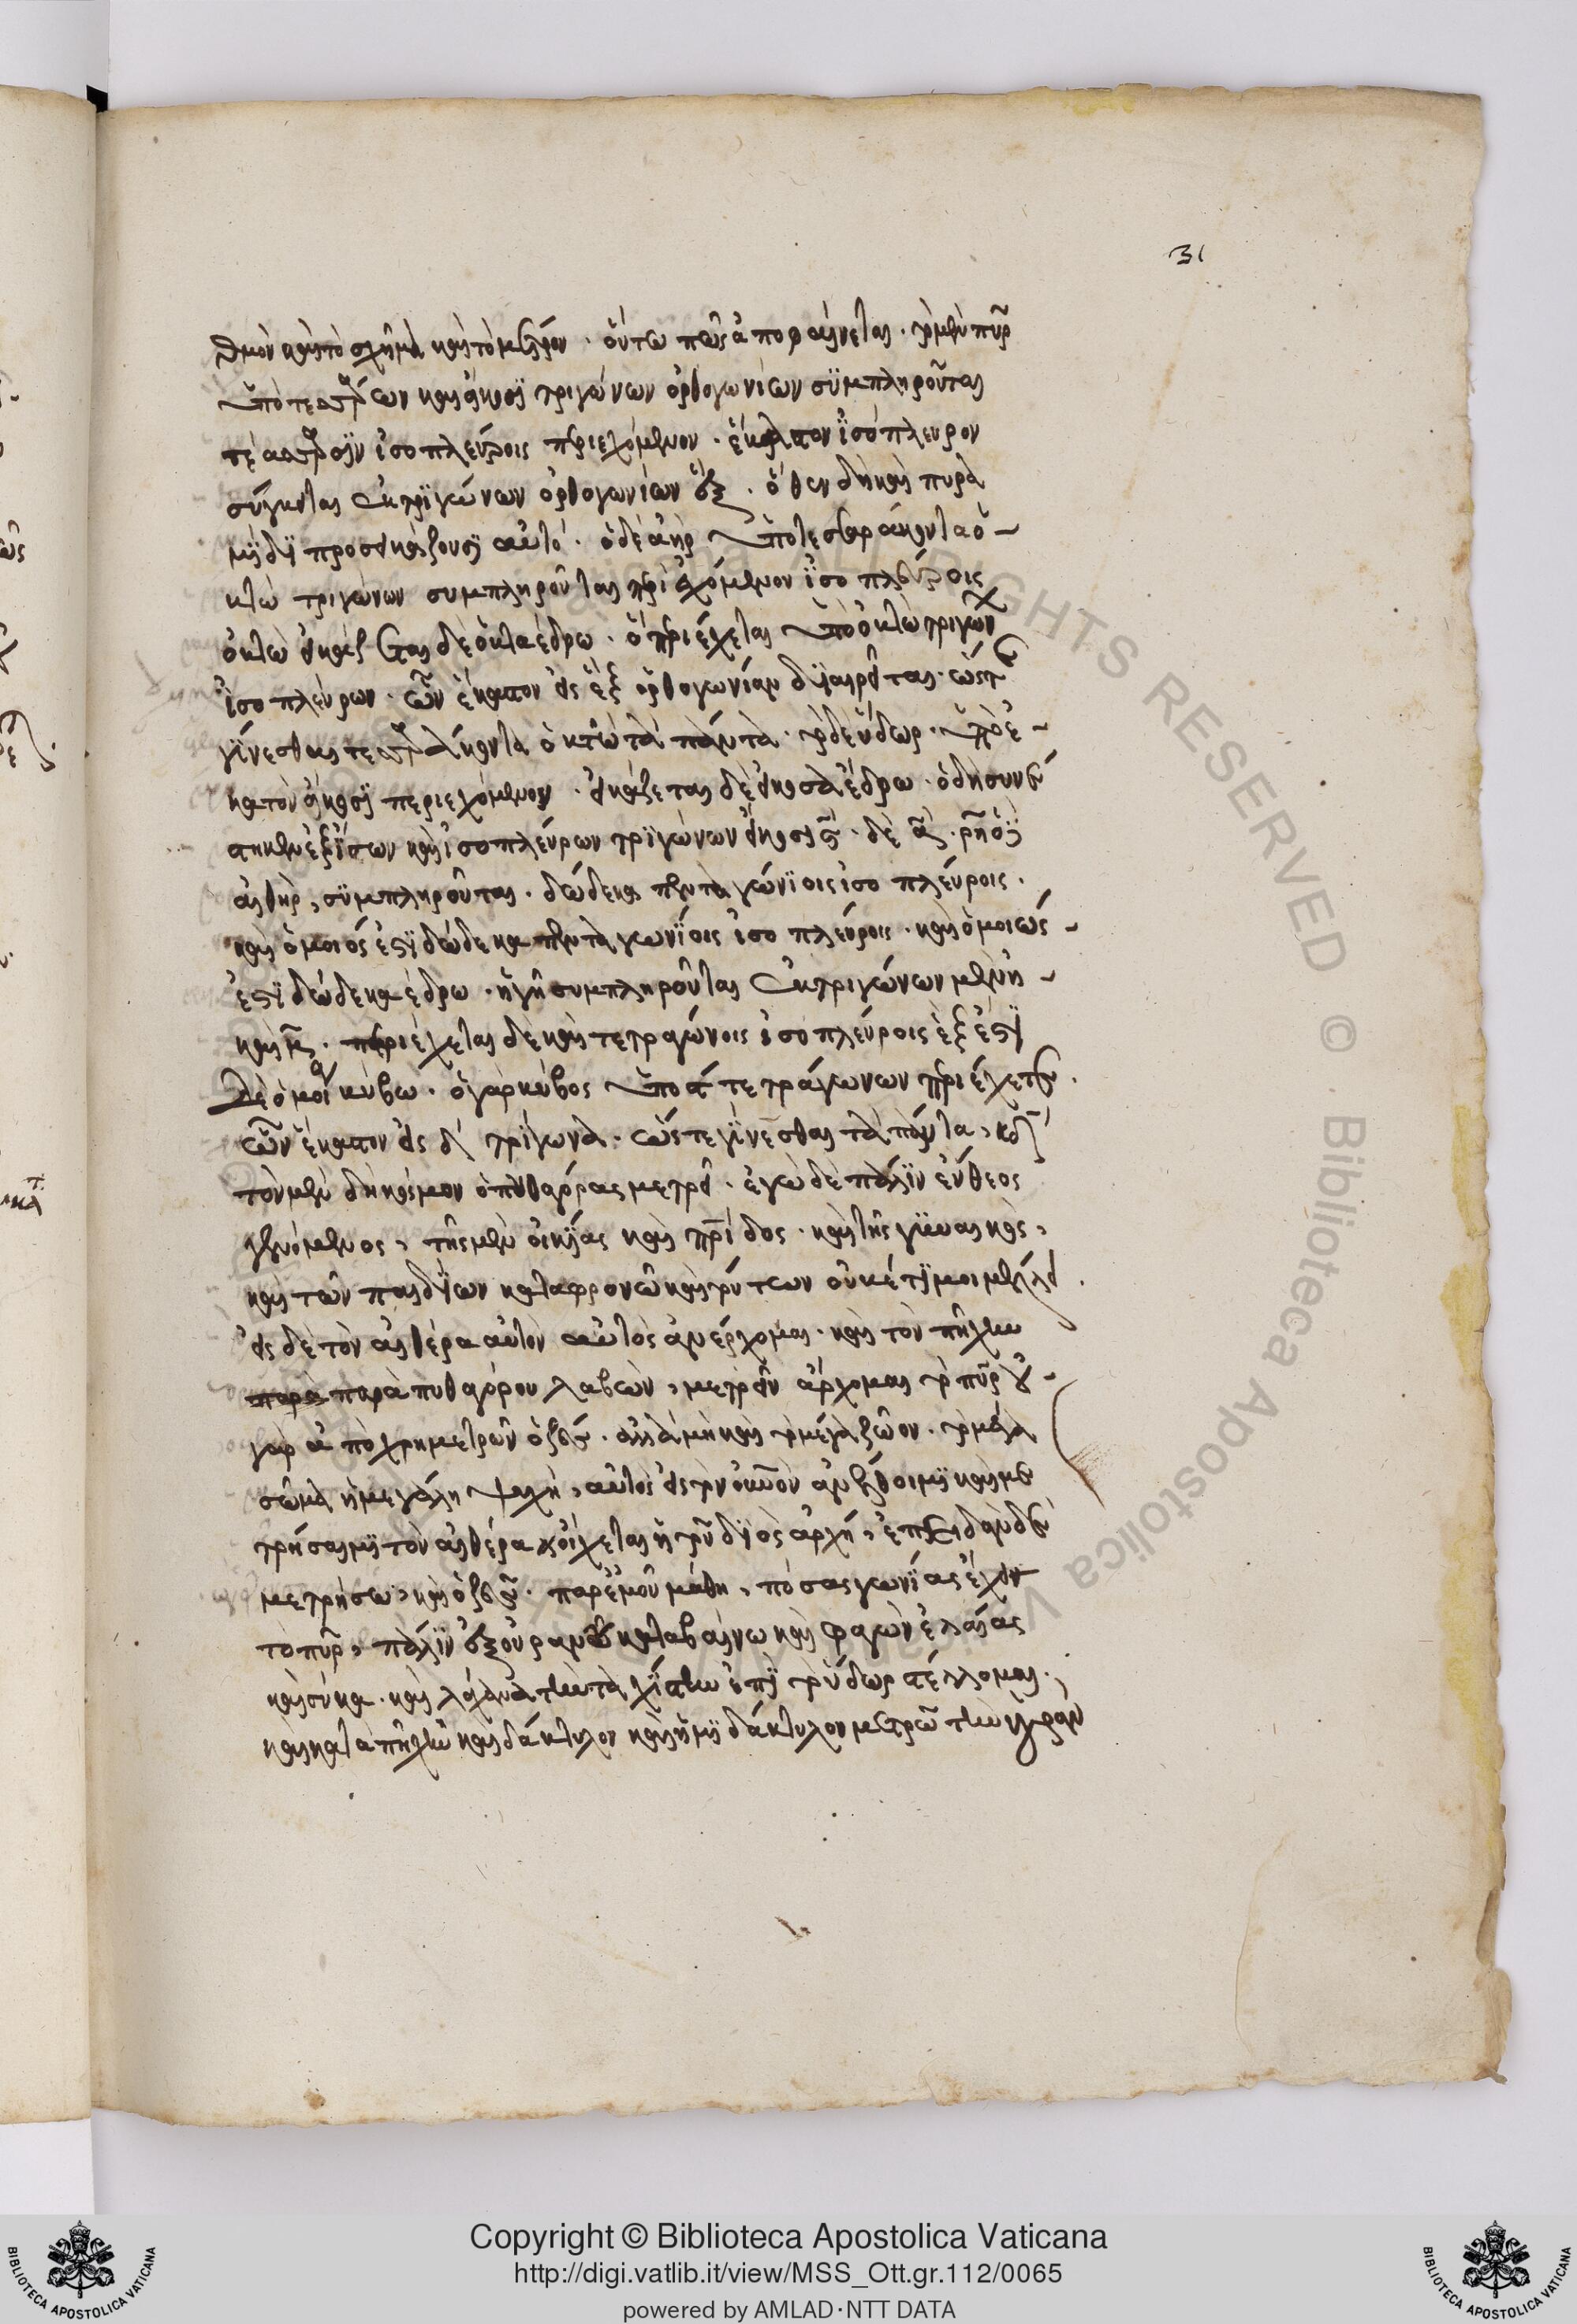 31
θμὸν καὶ τὸ σχῆμα καὶ τὸ μέτρον. οὕτω πως ἀποφαίνεται. τὸ μὲν πῦρ
ὑπὸ τεσσάρων καὶ εἴκοσϊ τριγώνων ὀρθογωνίων σϋμπληροῦται
τέσσαρσϊν ἰσοπλεύροις περιεχόμενον. ἕκαστον ἰσόπλευρον
σύγκειται ἐκ τρϊγώνων ὀρθογωνίων ἓξ. ὅθεν δὴ καὶ πυρα
μίδϊ προσεικάζουσϊ αὐτό. ὁ δὲ ἀὴρ ὑπὸ τεσσαράκοντα ὀ-
κτὼ τριγώνων συμπληροῦται περιεχόμενον ἰσοπλεύροις
ὀκτὼ εἰκάζεται δὲ ὀκταέδρω. ὃ περιέχεται ὑπὸ ὀκτὼ τριγώνων
ἰσοπλεύρων. ὧν ἕκαστον εἰς ἓξ ὀρθογωνίαν διαιρεῖται. ὥστε
γίνεσθαι τεσσαράκοντα ὀκτὼ τὰ πάντα. τὸ δὲ ὕδωρ. ὑπὸ ἑ-
κατὸν εἴκοσϊ περιεχόμενον. εἰκάζεται δὲ εἰκοσαέδρω. ὃ δὴ συνέ
στηκεν ἐξ ἴσων καὶ ἰσοπλεύρων τρϊγώνων
αἰθὴρ, σϋμπληροῦται. δώδεκα πενταγώνϊοις ἰσοπλεύροις.
καὶ ὅμοιός ἐστϊ δώδεκα πενταγωνίοις ἰσοπλεύροις. καὶ ὁμοιώς -
ἐστϊ δώδεκαέδρω. ἡ γῆ συμπληροῦται ἐκ τριγώνων μὲν η -
καὶ μ. περιέχεται δὲ καὶ τετραγώνοις ἰσοπλεύροις ἓξ ἐστϊ
δὲ ὁμοία κύβω. ὁ γὰρ κύβος ὑπὸ ϛ τετράγωνων περιέχεται.
ὧν ἕκαστον εἰς δ τρίγωνα. ὥστε γίνεσθαι τὰ πάντα, κδ
τὸν μὲν δὴ κόσμον ὁ πυθαγόρας μετρεῖ. ἐγὼ δὲ πάλϊν ἔνθεος
γενόμενος, τῆς μὲν οἰκίας καὶ πατρίδος. καὶ τῆς γυναικὸς,
καὶ τῶν παιδΐων καταφρονῶ καὶ τούτων οὐκέτϊ μοι μέλει.
εἰς δὲ τὸν αἰθέρα αὐτὸν αὐτὸς ἀνέρχομαι. καὶ τὸν πῆχυν
παρὰ παρὰ πυθαγόρου λαβὼν, μετρεῖν ἄρχομαι τὸ πῦρ οὐ -
γὰρ ἀπόχρη μετρῶν ὁ ζεύς. ἀλλὰ μὴ καὶ τὸ μέγα ζῶον. τὸ μέγα
σῶμα ἡ μεγάλη ψυχὴ, αὐτὸς εἰς τὸν οὐρανὸν ἀνέλθοιμϊ καὶ με
τρήσαιμϊ τὸν αἰθέρα οἴχεται ἡ τοῦ διὸς ἀρχή, ἐπειδὰν δὲ
μετρήσω, καὶ ὁ ζεὺς. παρ' ἐμοῦ μάθη, πόσας γωνίας ἔχει
τὸ πῦρ, πάλϊν ἐξ οὐρανοῦ καταβαίνω καὶ φαγὼν ἐλαίας
καὶ σύκα. καὶ λάχανα τὴν ταχίστην ἐπϊ τὸ ὕδωρ στέλλομαι.
καὶ κατὰ πῆχυν καὶ δάκτυλον καὶ ἡμϊδάκτυλον μετρῶ τὴν ὑγρὰν